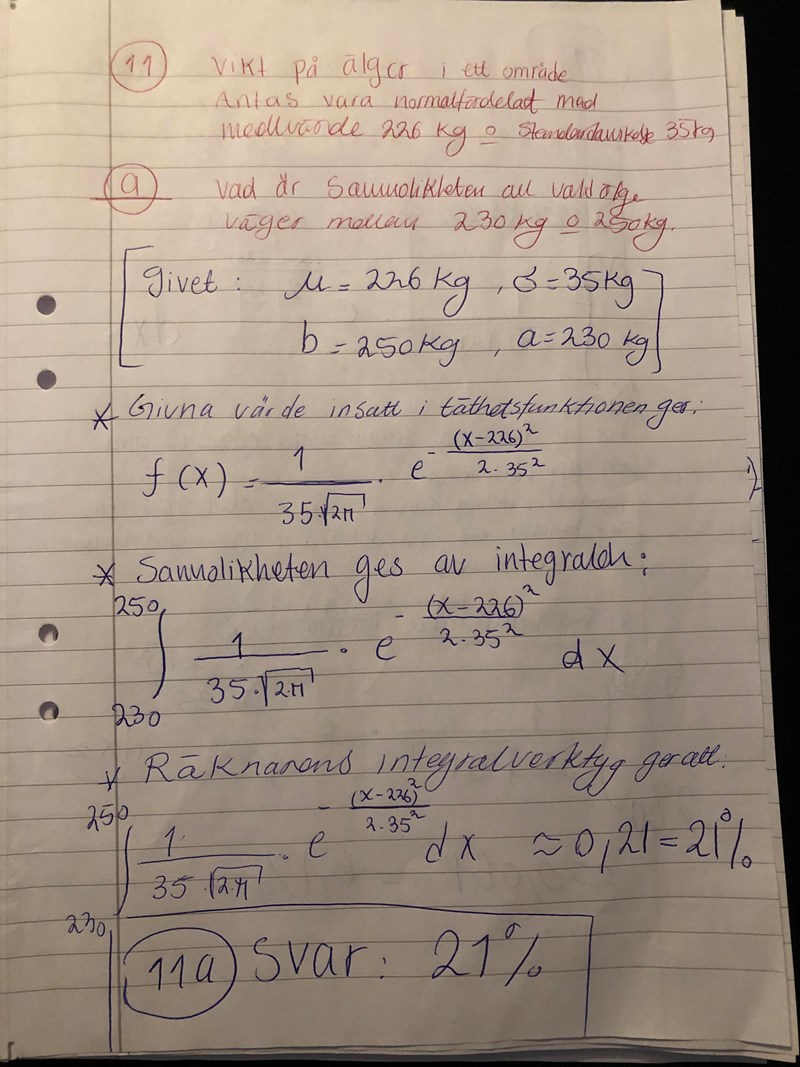 11 Vikt på älgar i ett område
Antas vara normalfördelat med
medlvärde 226 kg o Standardavvikelse 35kg
a Vad är Sannolikheten att vald älg
väger mellan 230 kg o 250kg.
Givet : μ = 226 kg , σ = 35kg
b = 250kg , a = 230 kg
* Givna värde insatt i täthetsfunktionen ger:
f(x) = 1/(35·√2π) · e^-(x-226)²/(2·35²)
* Sannolikheten ges av integralen:
∫_230^250 1/(35·√2·π) · e^-(x-226)²/(2·35²) dx
* Räknarens integralverktyg ger att:
∫_230^250 1/(35·√2·π) · e^-(x-226)²/(2·35²) dx ≈ 0,21 = 21%
11a Svar: 21%